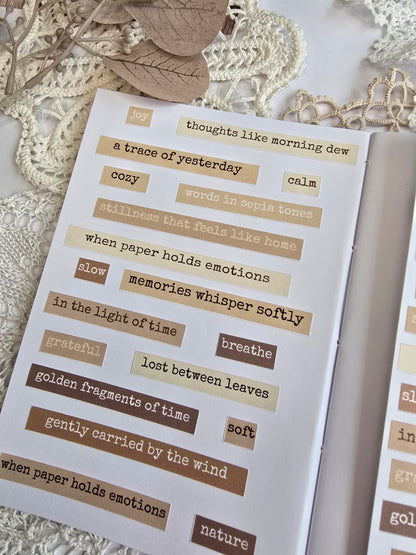 joy
thoughts like morning dew
a trace of yesterday
cozy
calm
words in sepia tones
stillness that feels like home
when paper holds emotions
slow
memories whisper softly
in the light of time
breathe
grateful
lost between leaves
golden fragments of time
soft
gently carried by the wind
when paper holds emotions
nature